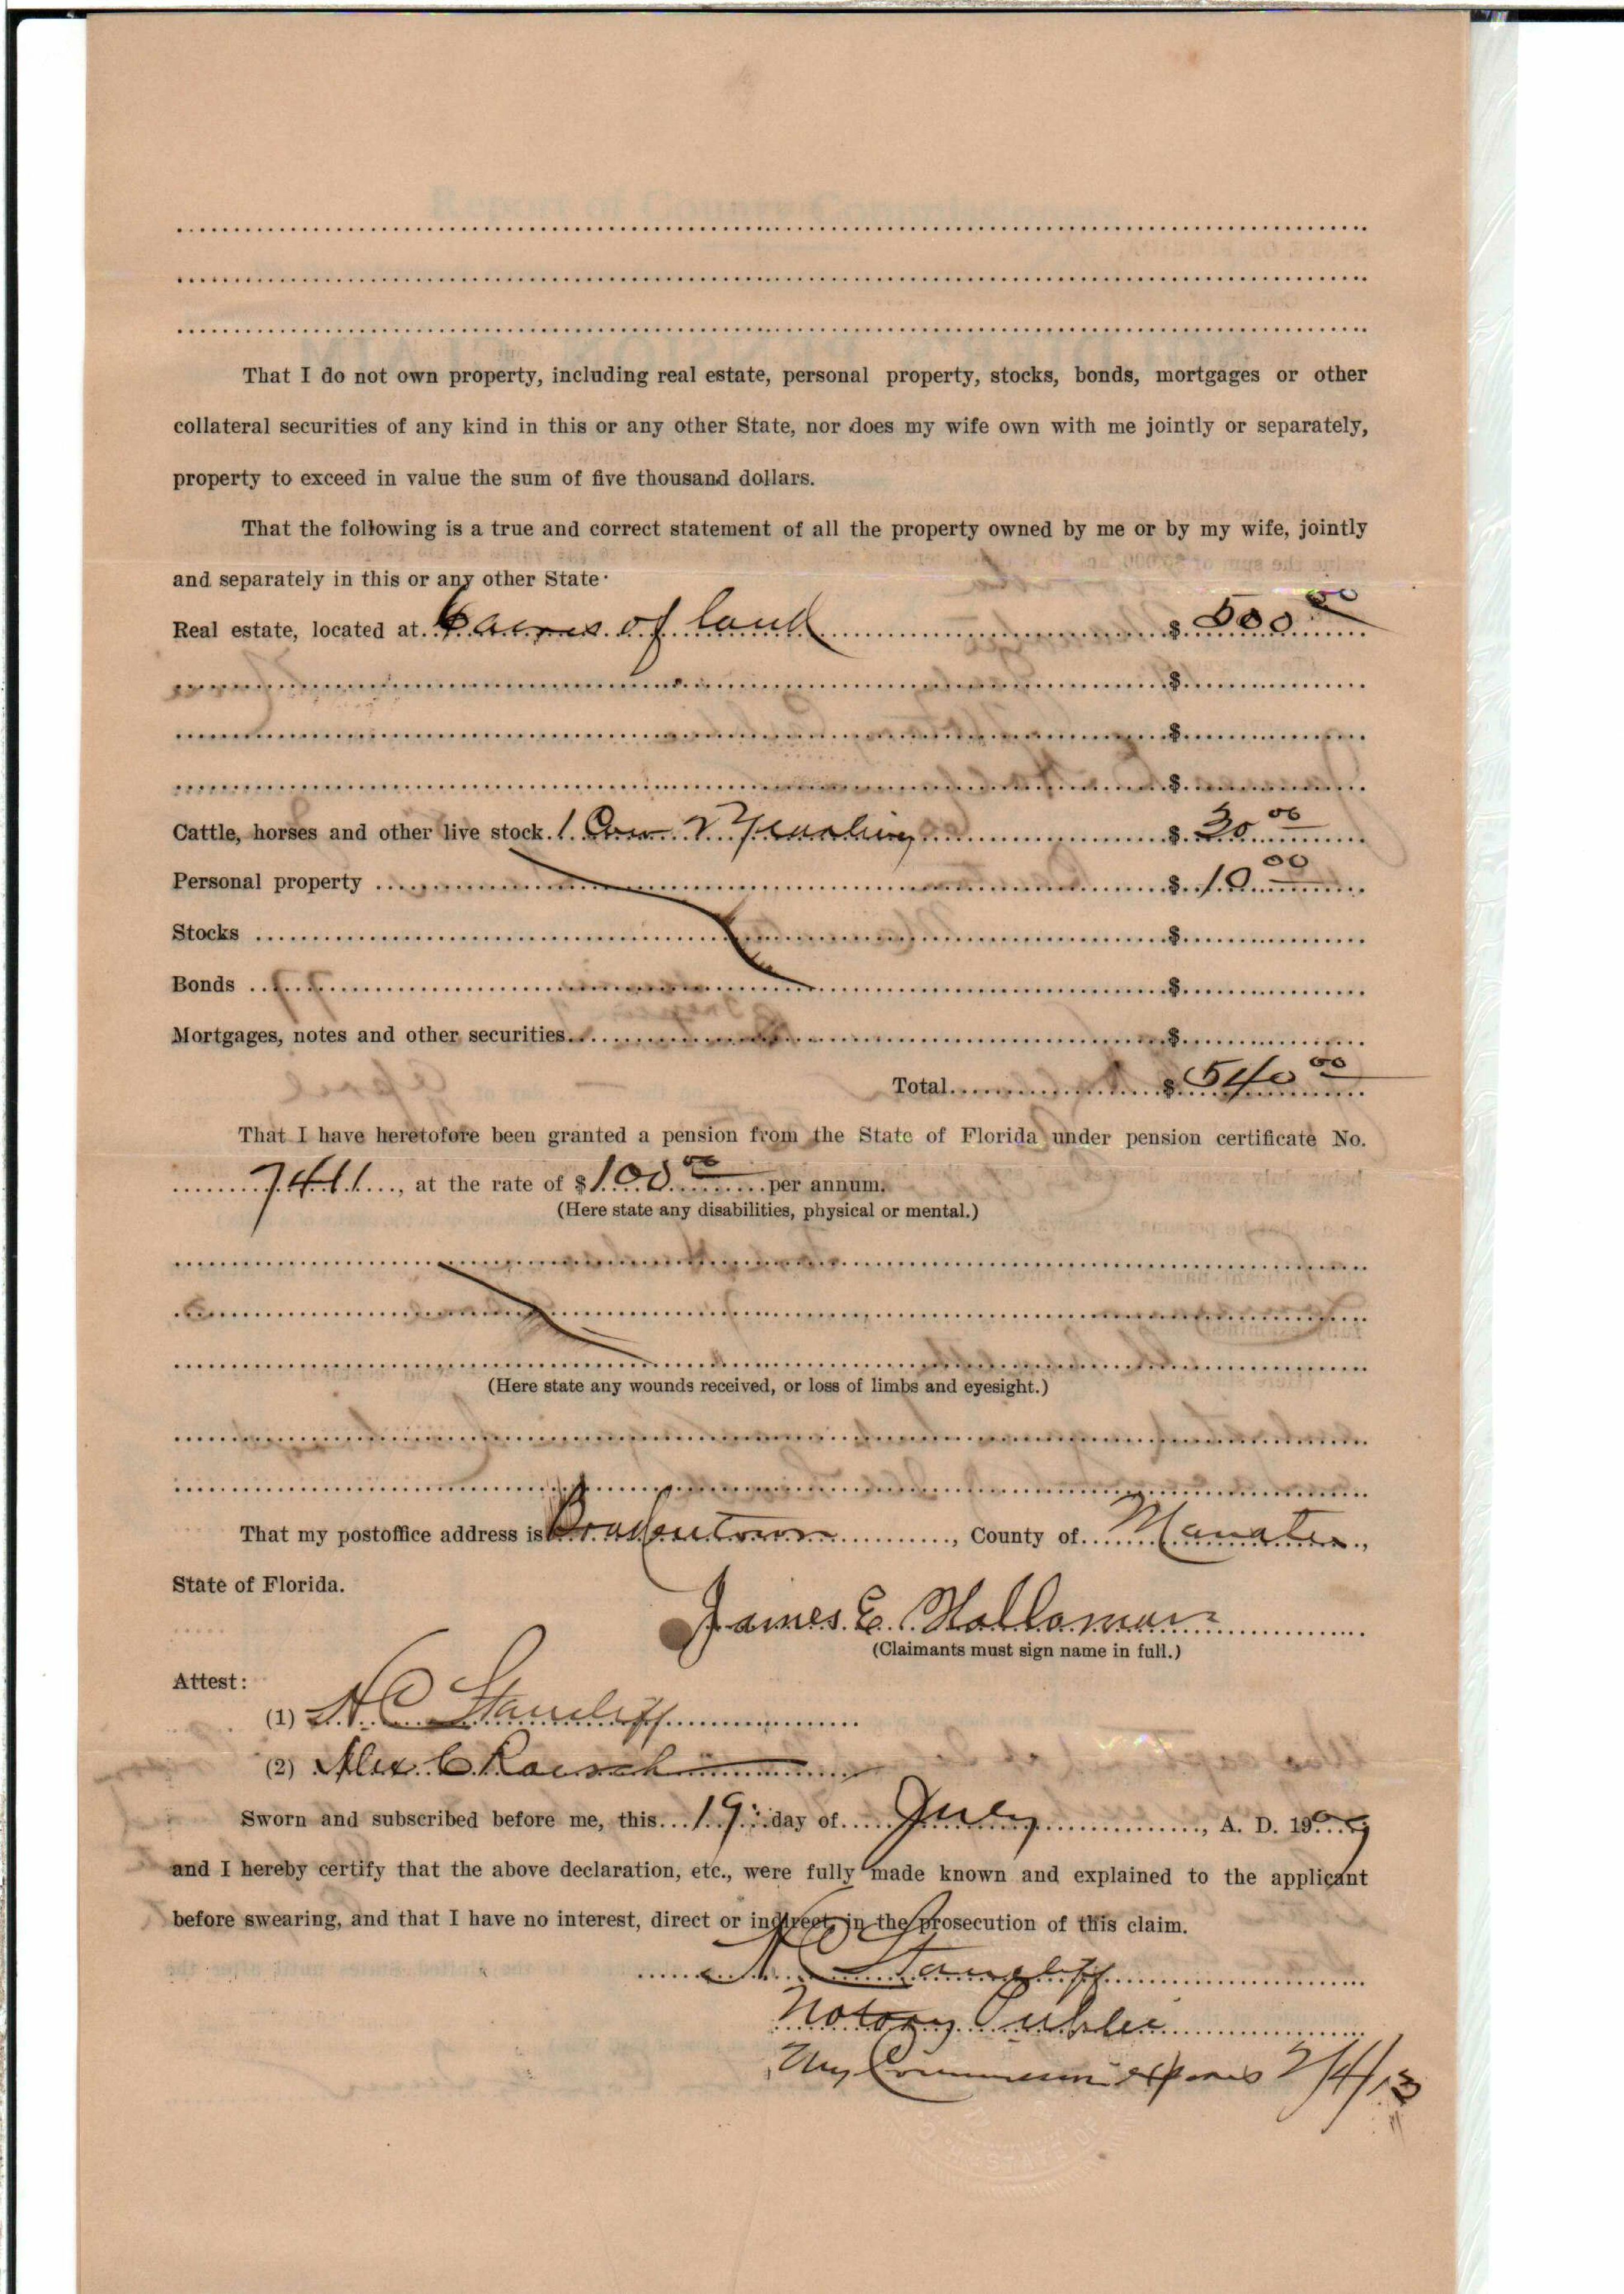 That I do not own property, including real estate, personal property, stocks, bonds, mortgages or other
collateral securities of any kind in this or any other State, nor does my wife own with me jointly or separately,
property to exceed in value the sum of five thousand dollars.
That the following is a true and correct statement of all the property owned by me or by my wife, jointly
and separately in this or any other State
Real estate, located at 6 acres of land $ 500 00
$
$
$
Cattle, horses and other live stock 1 Cow 2 Yearling $ 30 00
Personal property $ 10 00
Stocks $
Bonds $
Mortgages, notes and other securities $
Total $ 540 00
That I have heretofore been granted a pension from the State of Florida under pension certificate No.
7411, at the rate of $ 100 00 per annum.
(Here state any disabilities, physical or mental.)
(Here state any wounds received, or loss of limbs and eyesight.)
That my postoffice address is Braidentown, County of Manatee,
State of Florida.
James E. Holloman
(Claimants must sign name in full.)
Attest:
(1) H C Stancliff
(2) Alex C Roesch
Sworn and subscribed before me, this 19 day of July, A. D. 1909
and I hereby certify that the above declaration, etc., were fully made known and explained to the applicant
before swearing, and that I have no interest, direct or indirect, in the prosecution of this claim.
H C Stancliff
Notary Public
My Commission expires 2/4/13